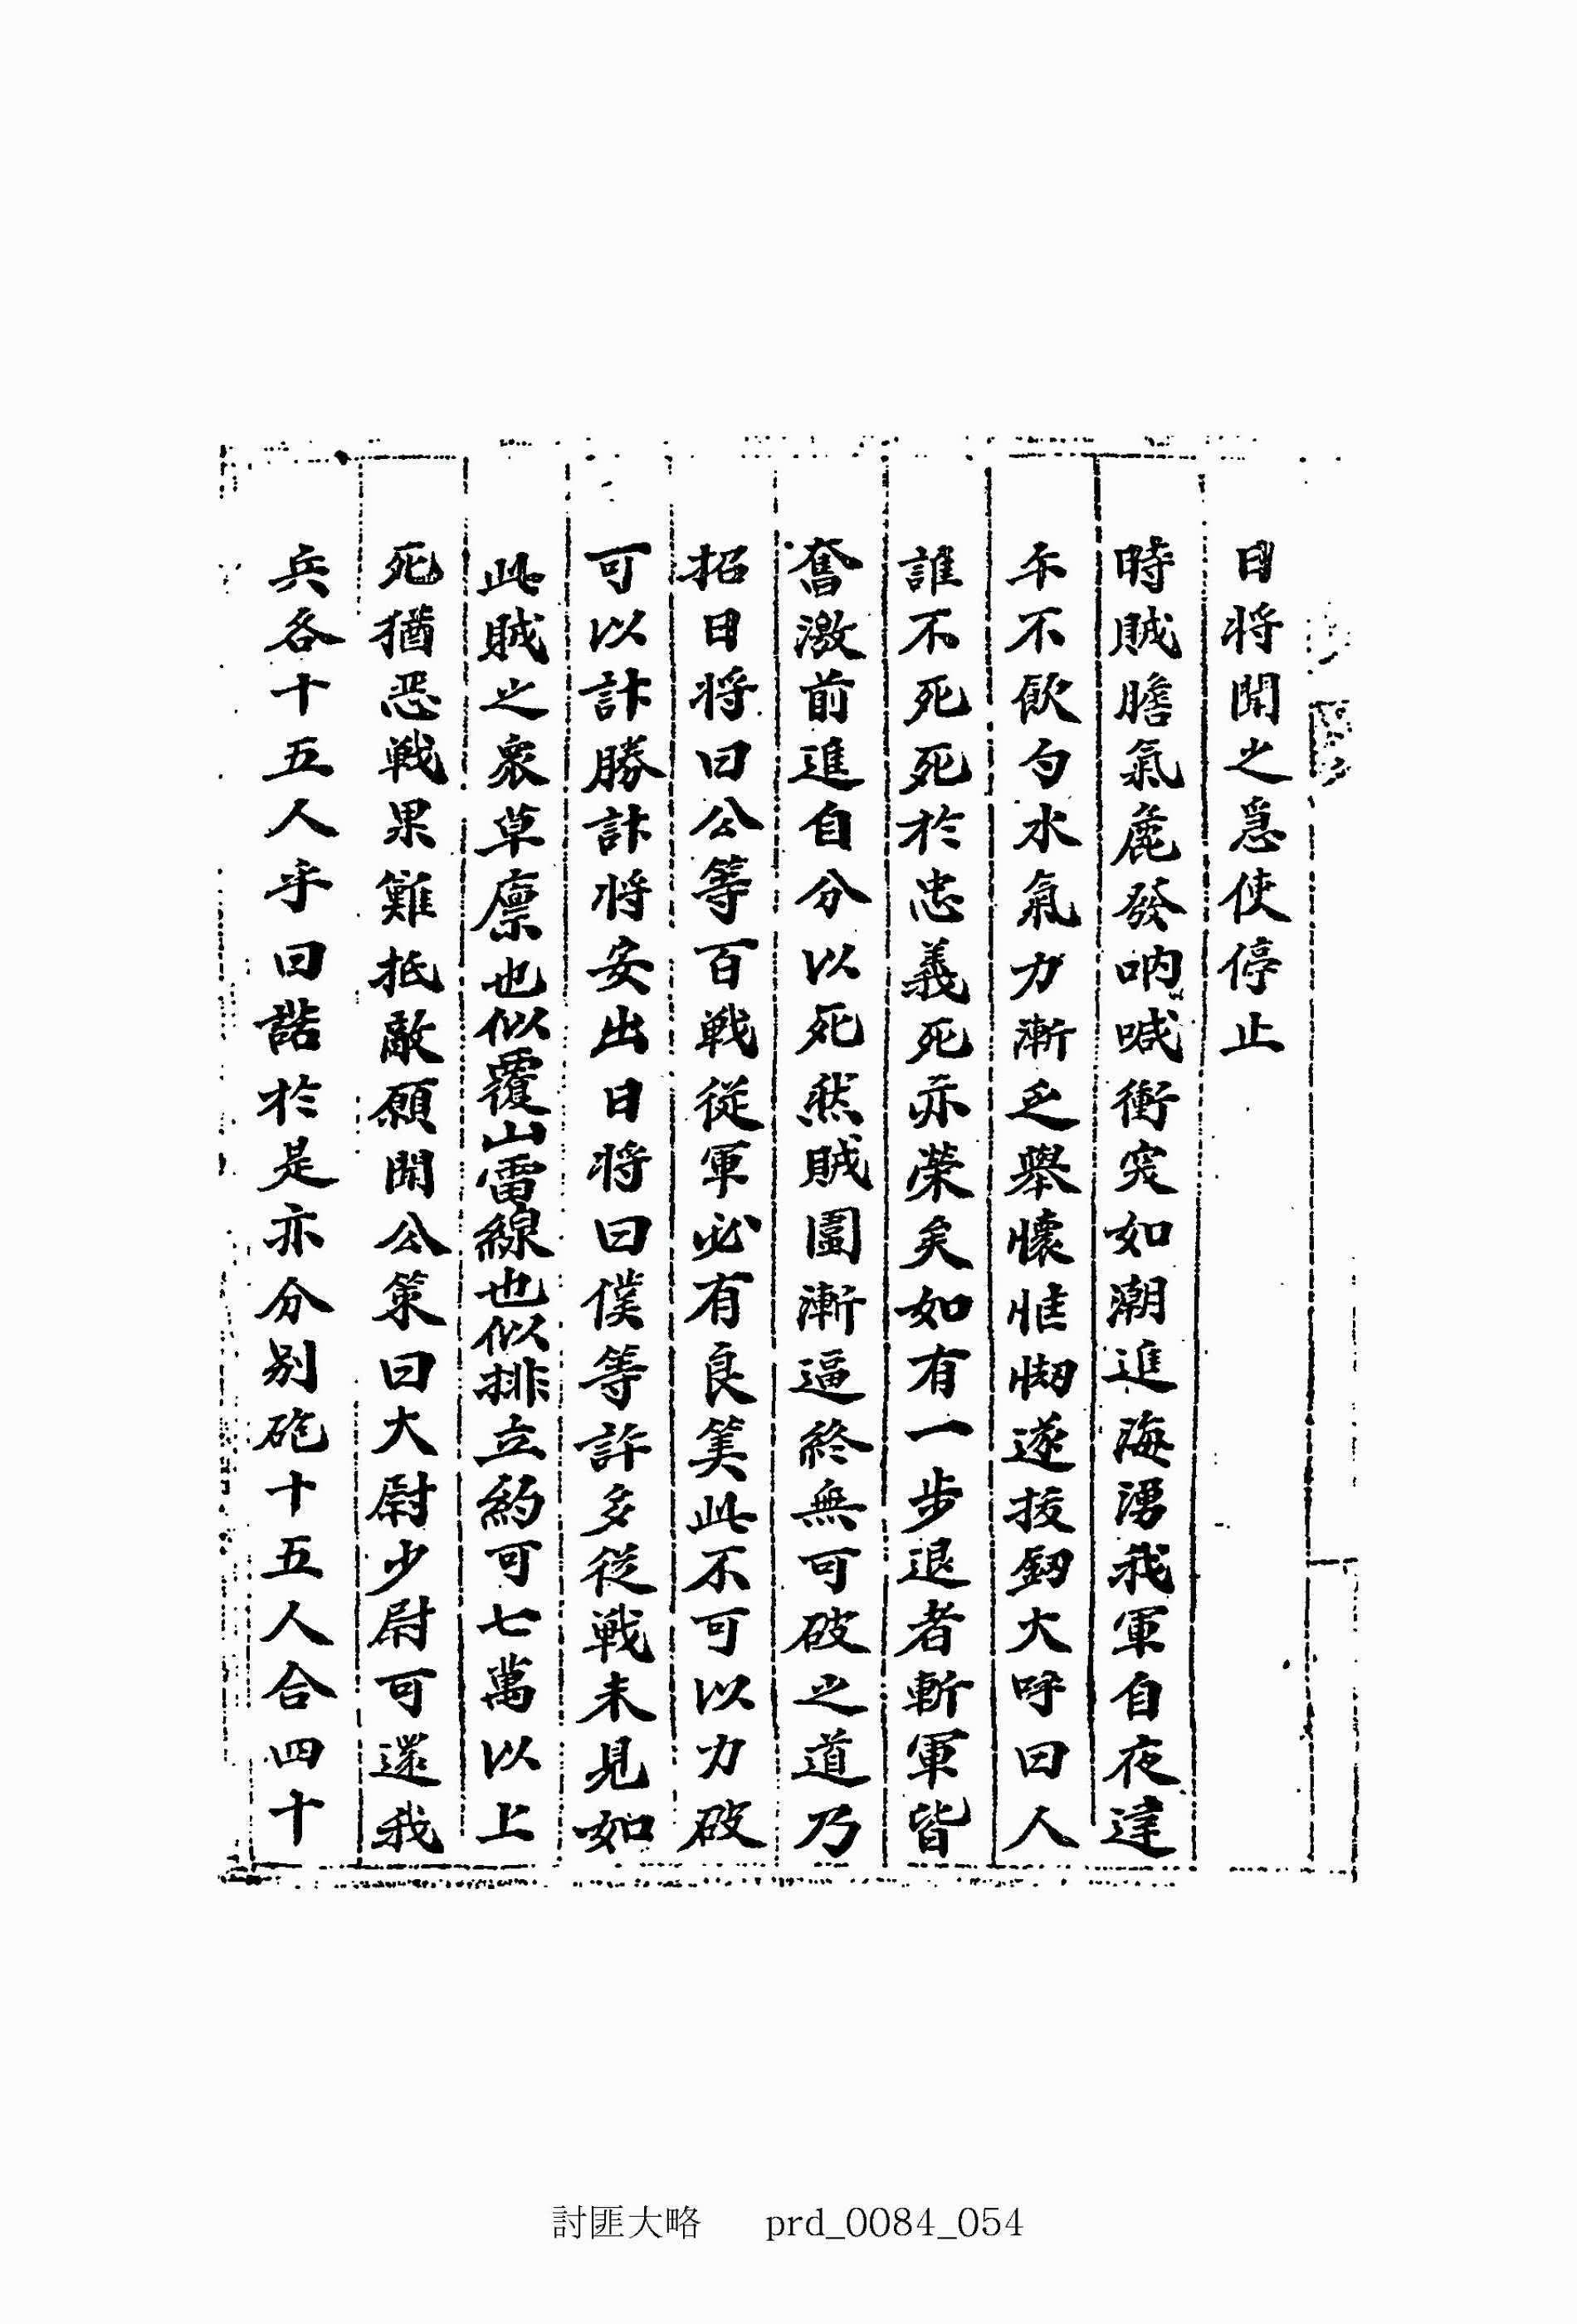 日将聞之急使停止
時賊膽氣麁發吶喊衝突如潮進海湧我軍自夜達
午不飮勺水氣力漸乏舉懷恇㤼遂拔釼大呼曰人
誰不死死於忠義死亦榮矣如有一步退者斬軍皆
奮激前進自分以死然賊圍漸逼終無可破之道乃
招日將曰公等百戰從軍必有良筭此不可以力破
可以計勝計將安出日將曰僕等許多從戰未見如
此賊之衆草廩也似覆山雷線也似排立約可七萬以上
死猶恶戰果難抵敵願聞公策曰大尉少尉可還我
兵各十五人乎曰諾於是亦分别砲十五人合四十
討匪大略 prd_0084_054